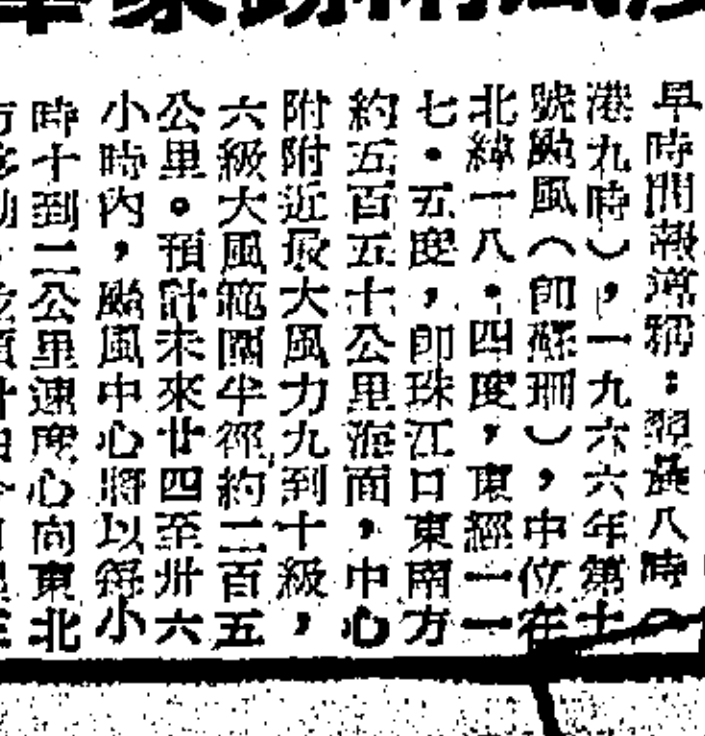 早時間報導稱：翌晨八時（
港九時），一九六六年第十
號颱風（即蘇珊），中位在
北緯一八．四度，東經一一
七．五度，即珠江口東南方
約五百五十公里海面，中心
附附近最大風力九到十級，
六級大風範圍半徑約二百五
公里。預計未來廿四至卅六
小時內，颱風中心將以每小
時十到二公里速度心向東北